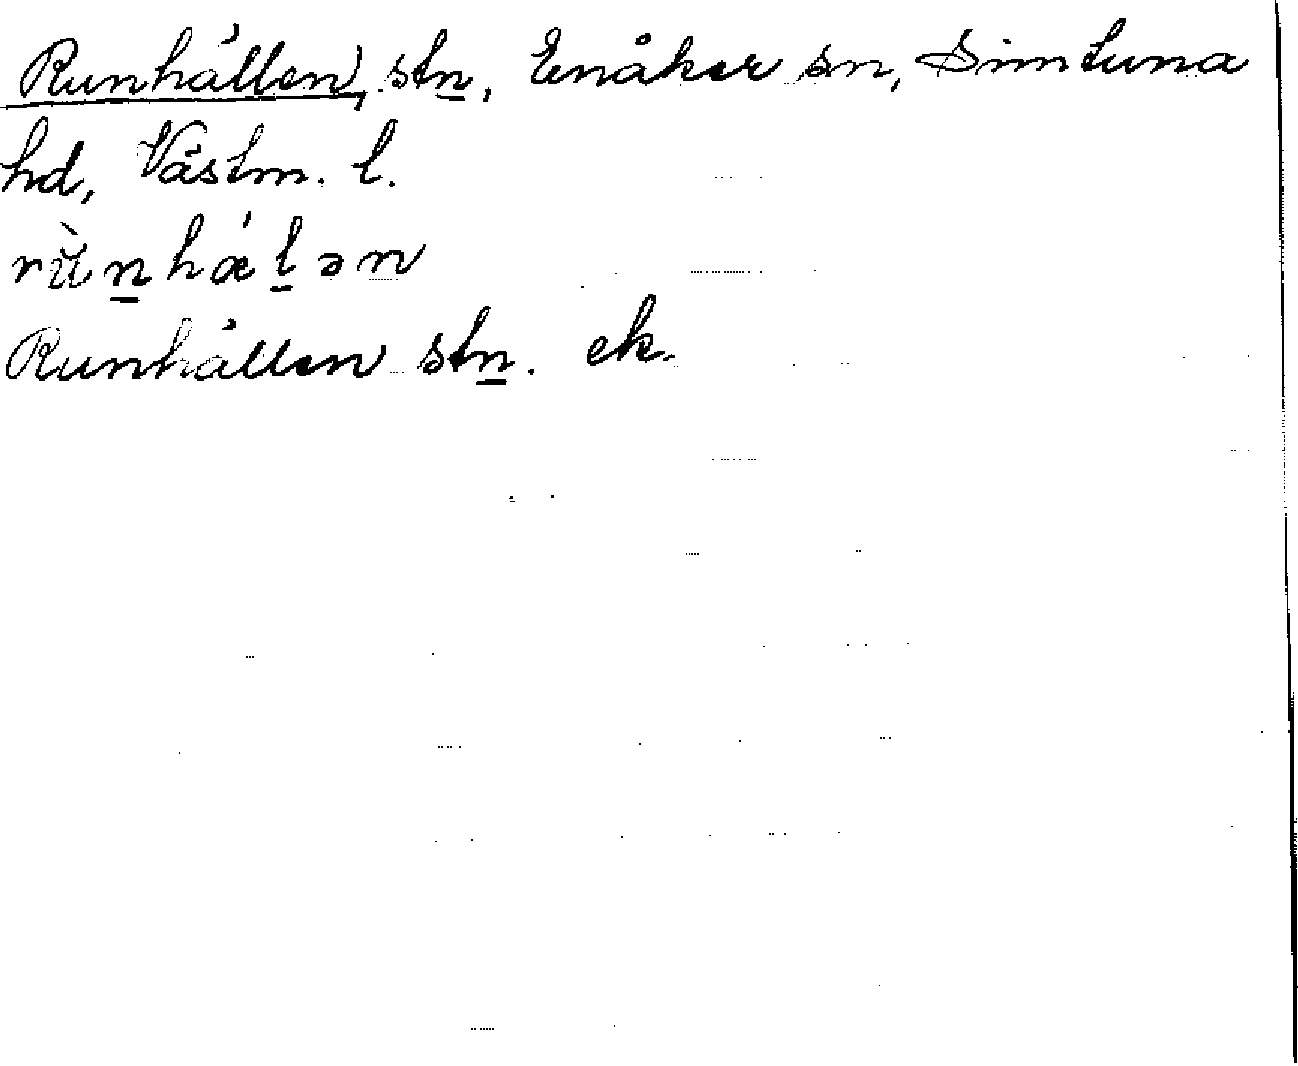 Runhällen, stn, Enåker sn, Simtuna
hd, Västm. l.
rŭ̀n̲hǽl̲ən
Runhällen stn. ek.